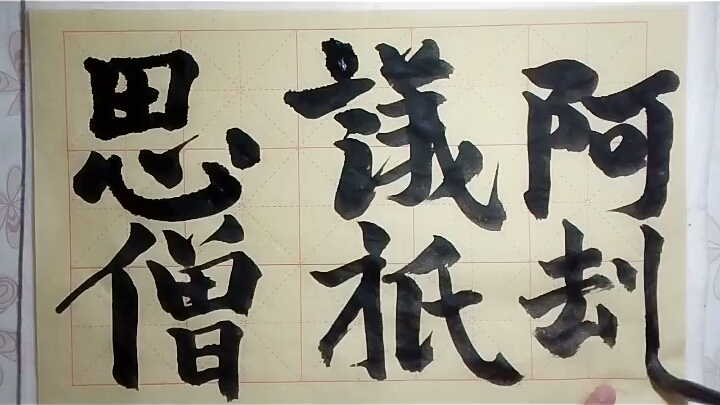 思議阿
僧祇刦